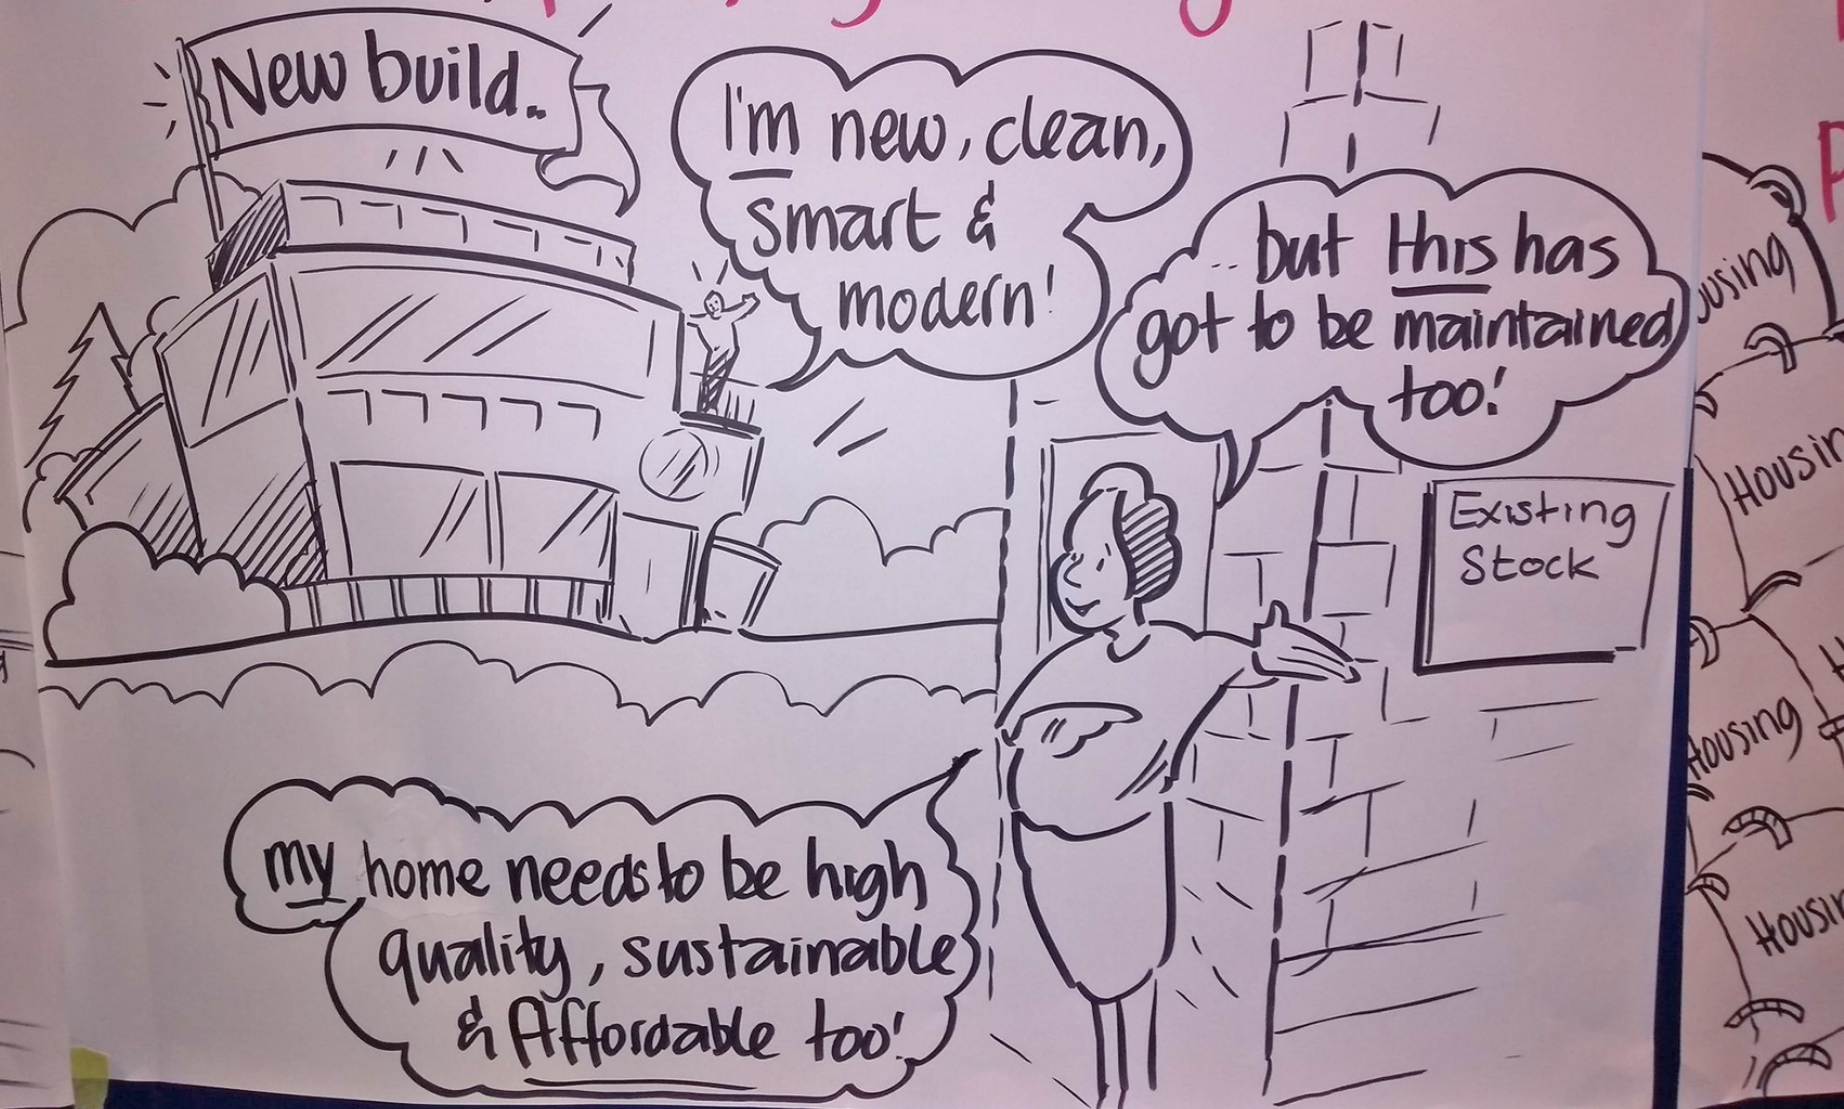 New build..
I'm new, clean,
smart &
modern!
... but this has
got to be maintained
too!
Existing
Stock
my home needs to be high
quality, sustainable
& Affordable too!
Housing
Housing